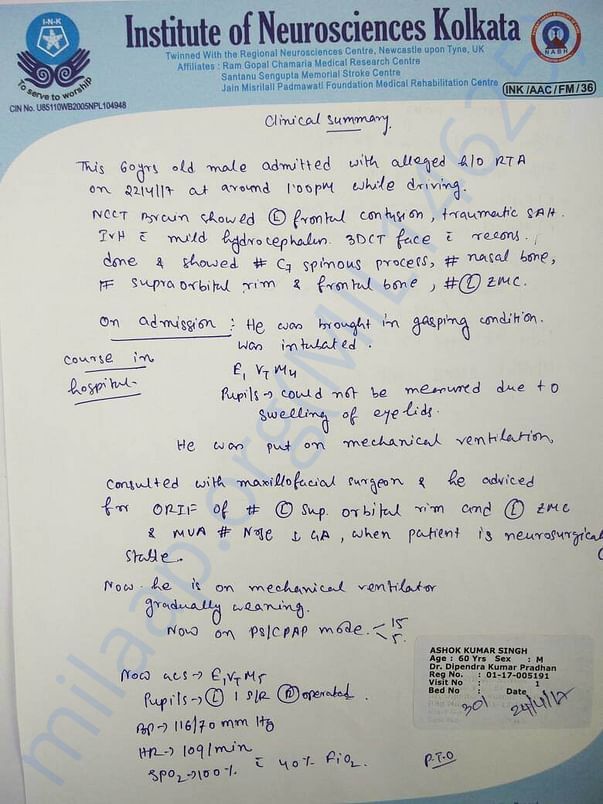 I-N-K
To serve to worship
CIN No. U85110WB2005NPL104948
Institute of Neurosciences Kolkata
Twinned With the Regional Neurosciences Centre, Newcastle upon Tyne, UK
Affiliates : Ram Gopal Chamaria Medical Research Centre
Santanu Sengupta Memorial Stroke Centre
Jain Misrilall Padmawati Foundation Medical Rehabilitation Centre
NABH
INK/AAC/FM/36
Clinical Summary.
This 60yrs old male admitted with alleged h/o RTA
on 22/4/17 at around 1:00pm while driving.
NCCT Brain showed Ⓛ frontal contusion, traumatic SAH.
IVH c̄ mild hydrocephalus. 3DCT face c̄ recons.
done & showed # C7 spinous process, # nasal bone,
# supraorbital rim & frontal bone, # Ⓛ ZMC.
On admission : He was brought in gasping condition.
was intubated.
course in
hospital-
E1 VT M4
Pupils → could not be measured due to
swelling of eyelids.
He was put on mechanical ventilation,
Consulted with maxillofacial surgeon & he adviced
for ORIF of # Ⓛ Sup. orbital rim and Ⓛ ZMC
& MUA # Nose ↓ GA, when patient is neurosurgical
stable.
Now he is on mechanical ventilator
gradually weaning.
Now on PS/CPAP mode. < 15
5.
Now GCS → E1 VT M5
Pupils → Ⓛ 1 S/R Ⓡ operated.
BP → 116/70 mm Hg
HR → 109/min
SPO2 → 100% c̄ 40% FiO2.
P.T.O
ASHOK KUMAR SINGH
Age : 60 Yrs Sex : M
Dr. Dipendra Kumar Pradhan
Reg No. : 01-17-005191
Visit No : 1
Bed No : Date
301 24/4/17